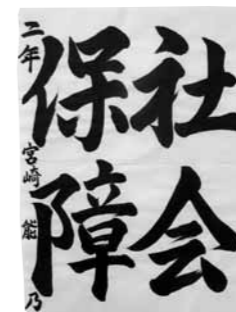 社会
保障
二年 宮崎 能乃